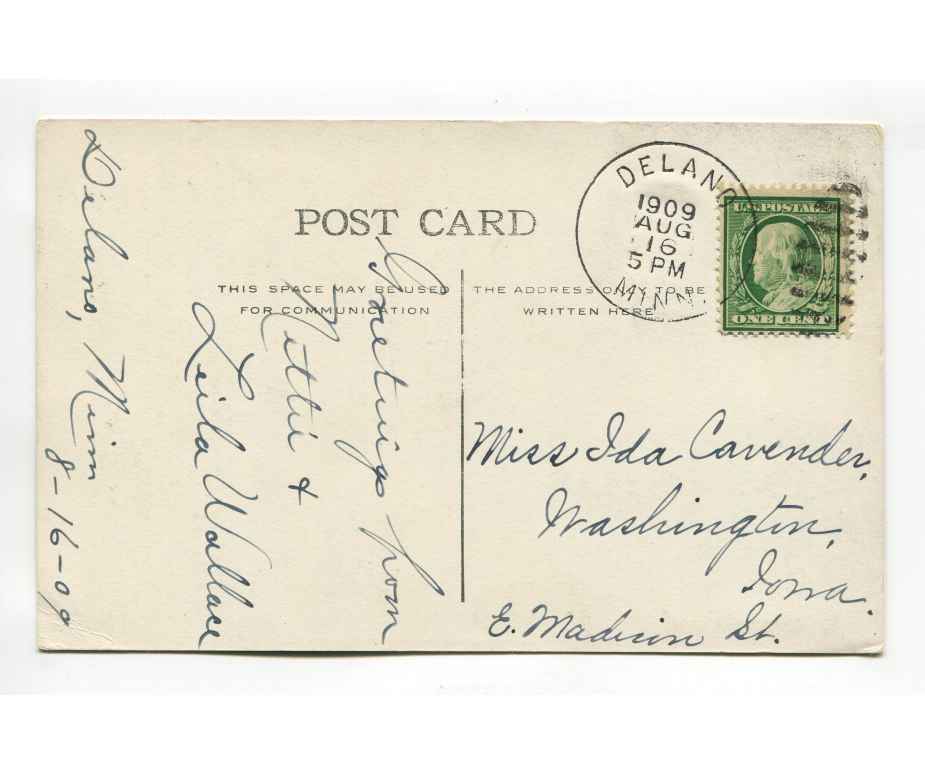 POST CARD
THIS SPACE MAY BE USED
FOR COMMUNICATION
THE ADDRESS ONLY TO BE
WRITTEN HERE
DELANO
1909
AUG
16
5 PM
MINN.
U.S. POSTAGE
ONE CENT
Delano, Minn
8-16-09
Greetings from
Nettie &
Leila Wallace
Miss Ida Cavender,
Washington,
Iowa.
E. Madison St.